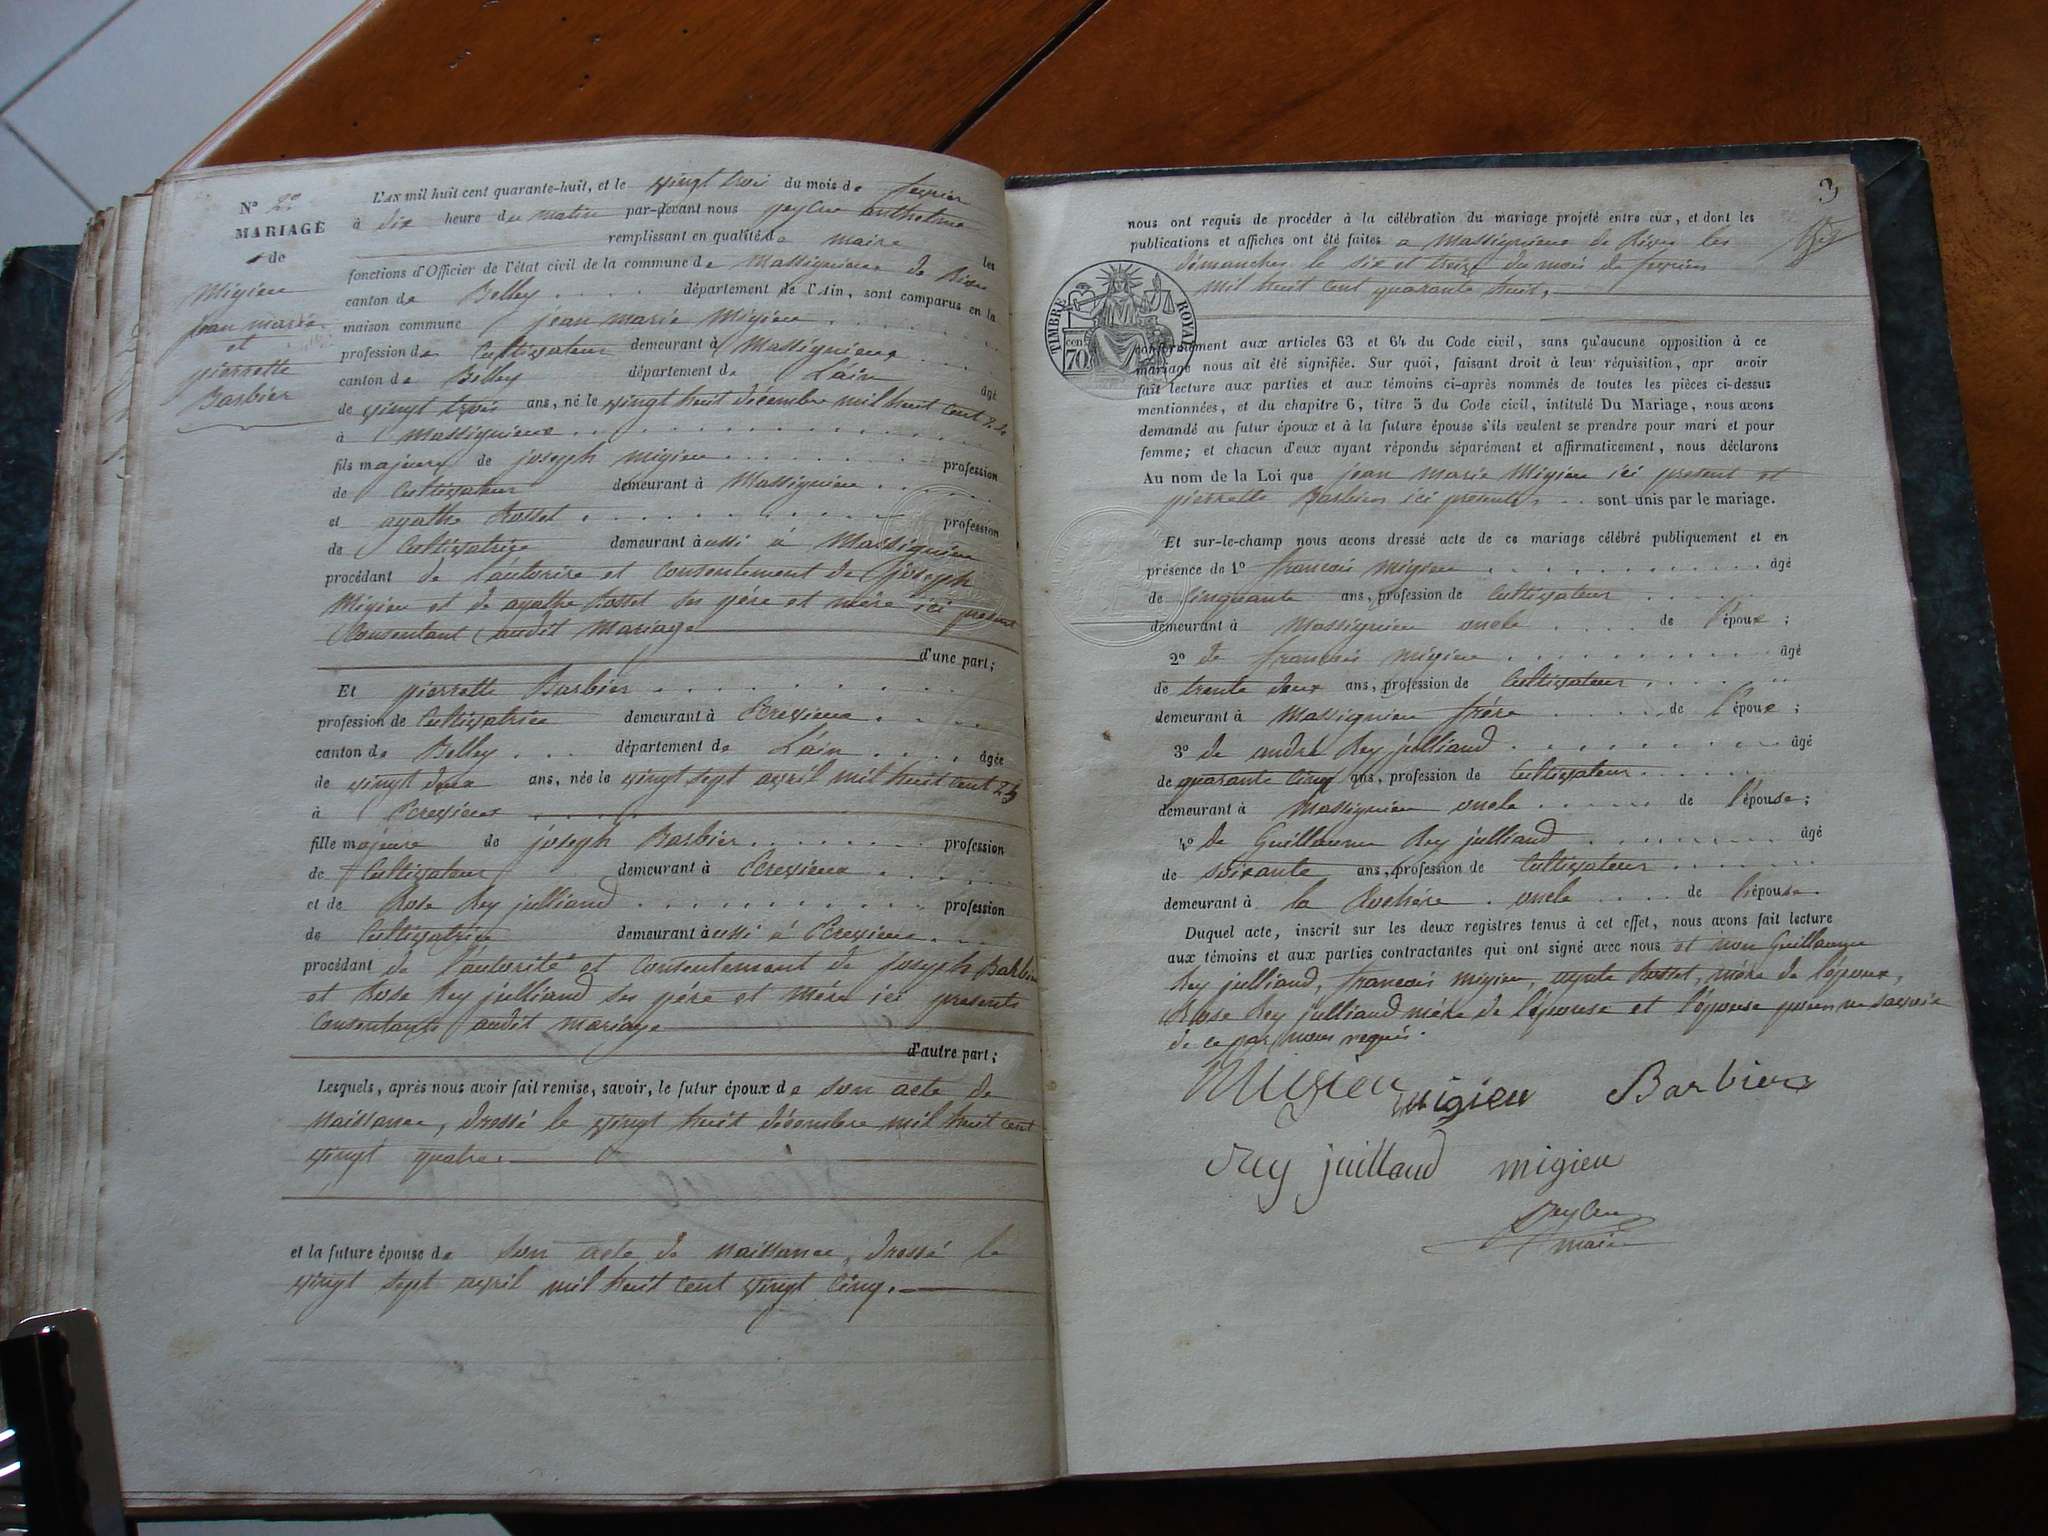 N° 2
MARIAGE
de
Migieu
jean marie
et
pierrette
Barbier
L'AN mil huit cent quarante-huit, et le vingt trois du mois de fevrier
à dix heure du matin par-devant nous peyleu anthelme
remplissant en qualité de maire les
fonctions d'Officier de l'état civil de la commune de Massignieu de Rives
canton de Belley département de l'Ain, sont comparus en la
maison commune jean marie Migieu
profession de Cultivateur demeurant à Massignieu
canton de Belley département de L'ain âgé
de vingt trois ans, né le vingt huit décembre mil huit cent 24
à Massignieu
fils majeur de joseph migieu profession
de Cultivateur demeurant à Massignieu
et agathe Rosset profession
de Cultivatrice demeurant aussi à Massignieu
procédant de l'autorire et consentement de joseph
Migieu et de agathe Rosset ses père et mère ici present
Consentant audit mariage
d'une part;
Et pierrette Barbier
profession de Cultivatrice demeurant à Ecrevieux
canton de Belley département de L'ain âgée
de vingt deux ans, née le vingt sept avril mil huit cent 25
à Ecrevieux
fille majeure de joseph Barbier profession
de Cultivateur demeurant à Ecrevieux
et de Rose Rey julliand profession
de Cultivatrice demeurant aussi à Ecrevieux
procédant de l'autorité et consentement de joseph Barbier
et Rose Rey julliand ses père et mère ici presents
Consentants audit mariage
d'autre part;
Lesquels, après nous avoir fait remise, savoir, le futur époux de son acte de
naissance, dressé le vingt huit décembre mil huit cent
vingt quatre.
et la future épouse de son acte de naissance, dressé le
vingt sept avril mil huit cent vingt cinq.
3
nous ont requis de procéder à la célébration du mariage projeté entre eux, et dont les
publications et affiches ont été faites a Massignieu de Rives les
démanches le six et treize du mois de fevrier
mil huit cent quarante huit,
TIMBRE ROYAL
70 cen
conformément aux articles 63 et 64 du Code civil, sans qu'aucune opposition à ce
mariage nous ait été signifiée. Sur quoi, faisant droit à leur réquisition, apr avoir
fait lecture aux parties et aux témoins ci-après nommés de toutes les pièces ci-dessus
mentionnées, et du chapitre 6, titre 5 du Code civil, intitulé Du Mariage, nous avons
demandé au futur époux et à la future épouse s'ils veulent se prendre pour mari et pour
femme; et chacun d'eux ayant répondu séparément et affirmativement, nous déclarons
Au nom de la Loi que jean marie Migieu ici present et
pierrette Barbier ici presente sont unis par le mariage.
Et sur-le-champ nous avons dressé acte de ce mariage célébré publiquement et en
présence de 1° francois migieu âgé
de cinquante ans, profession de Cultivateur
demeurant à Massignieu oncle de l'époux;
2° de francois migieu âgé
de trente deux ans, profession de Cultivateur
demeurant à Massignieu frére de l'époux;
3° de andré Rey julliand âgé
de quarante cinq ans, profession de Cultivateur
demeurant à Massignieu oncle de l'épouse;
4° de Guillaume Rey julliand âgé
de soixante ans, profession de Cultivateur
demeurant à la Rochére oncle de l'épouse.
Duquel acte, inscrit sur les deux registres tenus à cet effet, nous avons fait lecture
aux témoins et aux parties contractantes qui ont signé avec nous et non Guillaume
Rey julliand, francois migieu, agate Rosset, mère de l'époux,
Rose Rey julliand mére de l'épouse et l'épouse pour ne savoir
de ce par nous requis.
Migieu migieu Barbier
Rey juilland migieu
Peyleu
maire